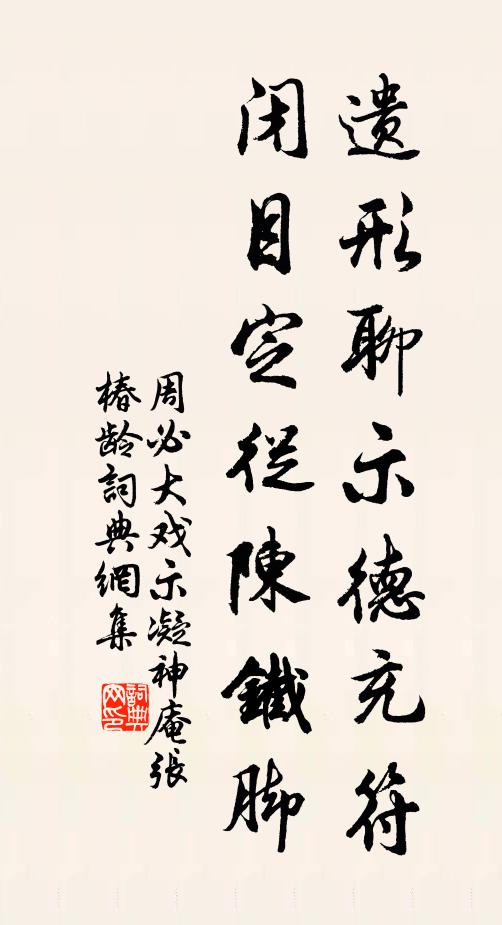 遗形聊示德充符
闭目定從陳鐵脚
周必大戏示凝神庵張
椿龄詞典網集
詞典网印